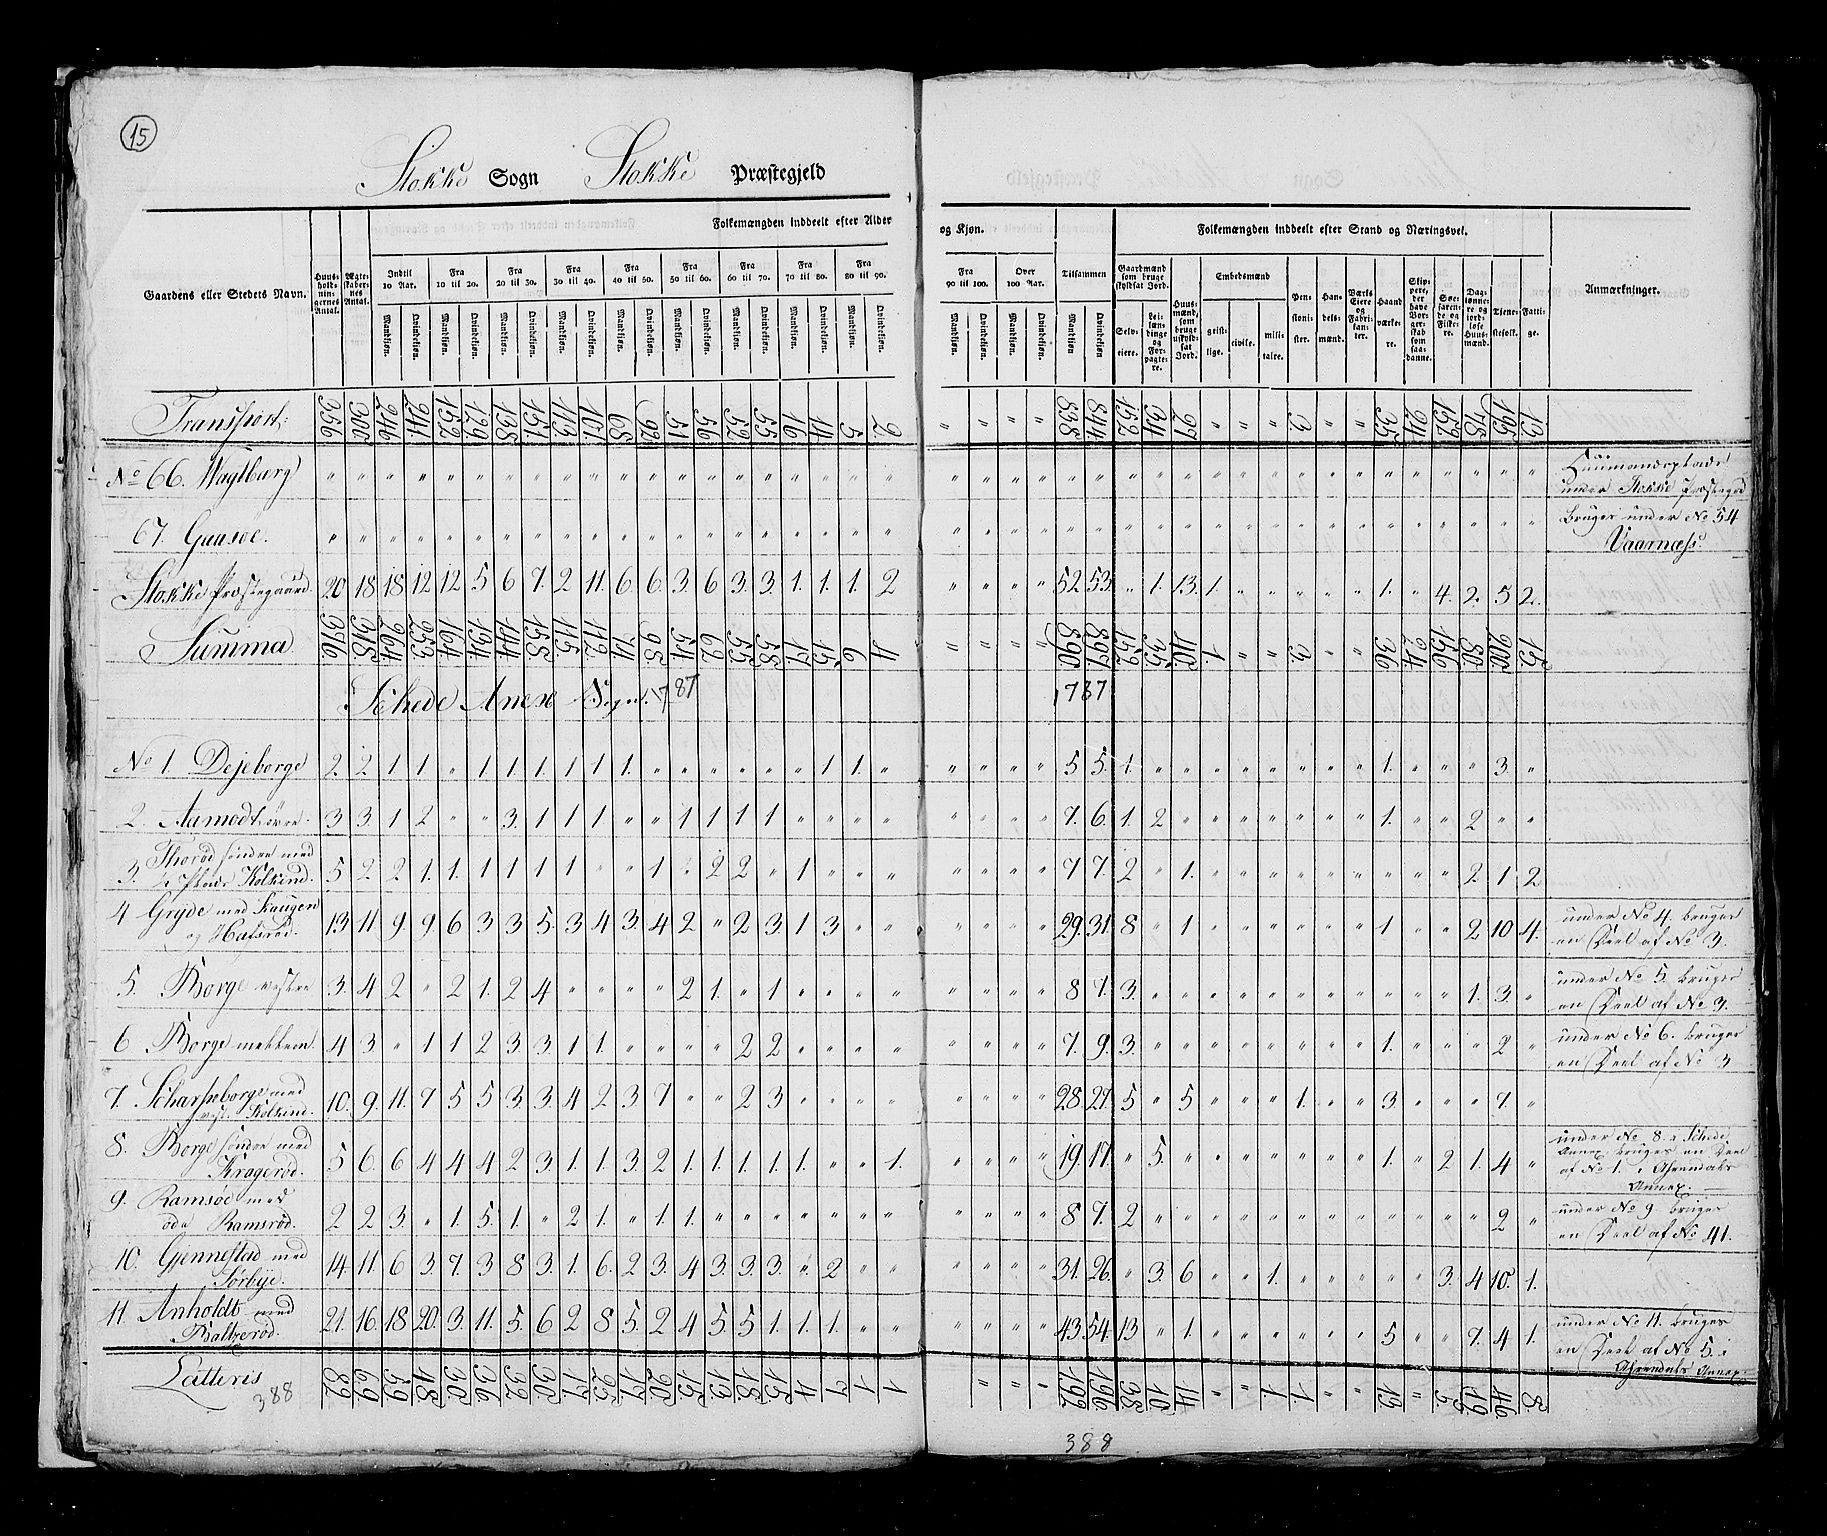 15
Stokke Sogn Stokke Præstegjeld
Gaardens eller Stedets Navn. Huusholdningernes Antal. Ægteskabernes Antal. Folkemængden inddeelt efter Alder og Kjøn. Tilsammen Folkemængden inddeelt efter Stand og Næringsvei. Anmærkninger.
Indtil 10 Aar. Fra 10 til 20. Fra 20 til 30. Fra 30 til 40. Fra 40 til 50. Fra 50 til 60. Fra 60 til 70. Fra 70 til 80. Fra 80 til 90. Fra 90 til 100. Over 100 Aar.
Mandkjøn. Qvindekjøn.
Gaardmænd som bruge skyldsat Jord. Selveiere. Leilændinge og Forpagtere. Huusmænd, som bruge uskyldsat Jord. Embedsmænd geistlige. civile. militaire. Pensionister. Handelsmænd. Værks Eiere og Fabrikanter. Haandværkere. Skippere, der have Borgerskab som saadanne. Søefarende og Fiskere. Daglønnere og jordløse Huusmænd. Tjenestefolk. Fattige.
Transport: 356 300 246 241. 152 129 138 151. 113. 101. 68 92 51 56 52 55 16 14 5 2. " " " " 838 844. 152 34 27 " " " 3. " " 35 24 152 78 195 13
No 66. Wagtbærg " " " " " " " " " " " " " " " " " " " " " " " " " " " " " " " " " " " " " " " " " Huusmandsplads under Stokke Præstegrd
67. Gaasøe. " " " " " " " " " " " " " " " " " " " " " " " " " " " " " " " " " " " " " " " " " Bruges under No 54 Vaarnæss.
Stokke Præstegaard. 20 18 18 12 12 5 6 7. 2 11. 6. 6. 3. 6 3. 3. 1. 1. 1. 2 " " " " 52 53. " 1. 13. 1. " " " " " 1. " 4. 2. 5 2.
Summa 376. 318. 264. 253 164 134. 144. 158. 115. 112. 74. 98 54. 62 55 58 17 15. 6 4 " " " " 890 897. 152 35 40. 1. " " 3. " " 36 24 156 80. 200 15.
Schede Anex Sogn. 1787 1787
No 1. Dejeborge 2. 2 1 1 " 1 1 1. 1 1 1. " " " " " " 1 1. " " " " " 5 5. 1. " " " " " " " " 1. " " " 3. "
2. Aamodt øvre. 3 3. 1 2 " " 3. 1 1 1 " " 1 1 1 1 " " " " " " " " 7. 6. 1. 2 " " " " " " " 1. " " 2 " "
3. Thorød søndre med ½ Plads Kolkind. 5 2 2 1. 1. 1 1 1 1 " " 1 " 2 2 " 1 " " " " " " " 7 7. 2 " 1. " " " " " " " " " 2. 1 2
4 Gryde med Skaugen og Halsrød. 13 11 9. 9. 6 3 3 5. 3 4 3. 4 2 " 2 3. 1 3 " " " " " " 29. 31. 8 " 1 " " " " " " 1 " " 2 10 4. under No 4. bruges en Deel af No 3.
5. Borge vestre 3. 4 2 " 2 1. 2 4 " " " " 2 1. " 1 " " " " " " " " 8 7. 3. " " " " " " " " " " " 1. 3. " under No 5. bruges en Deel af No 3.
6 Borge mellem. 4 3. " 1 1 2 3. 3. 1 1. " " " " 2 2 " " " " " " " " 7. 9. 3. " " " " " " " " 1. " " " 2 " under No 6. bruges en Deel af No 3
7. Scharpeborge med vest. Kolkind. 10. 9. 11. 7 5 5 3. 3. 4 2 3. 7 " " 2 3 " " " " " " " " 28. 27. 5 " 5 " " " 1. " " 3. " " " 7. "
8. Borge søndre med Kragerød. 5 6. 6 4 4 4 2 3. 1. 1. 3. 2 1. 1. 1. 1. 1. " " 1. " " " " 19. 17. " 5. " " " " " " " 1. " 2 1. 4 " under No 8. i Schede Annex. bruges en Deel af No 1. i Arendahls Annex.
9. Ramsøe med øde Ramsrød. 2 2 3. " 1. 5. 1. " 2 1. " 1. 1. " " " " " " " " " " " 8 7. 2 " " " " " " " " " " " " 2 " under No 9 bruges en Deel af No 41.
10. Gjennestad med Sørbye. 14. 11. 6 3. 7. 3 8 3. 1. 6. 2 3. 4 3. 3. 3. " 2 " " " " " " 31. 26. " 3. 6 " " 1. " " " " " 3. 4 10. 1.
11. Anholdt med Baltzerød. 21. 16. 18 20. 3. 11. 5. 6 2 8 5. 2 4 5 5. 1. 1. 1. " " " " " " 43. 54. 13 " 1. " " " " " " 5 " " 7. 4 1. under No 11. bruges en Deel af No 5. i Arendals Annex.
Latteris 82. 69 59 48 30 36 32 30 17 25 17 20 15 13 18. 15. 4 7 1 1. " " " " 192 196 38 10 14 " " 1. 1. " " 13. " 5. 19. 46. 8.
388 388